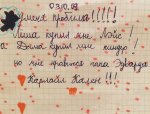 03.10.08
У меня проблема!!!!!
Лиша купил мне Лэйс!
а Дима купил мне киндер!
но мне нравится папа Эдварда
Карлайл Кален!!!